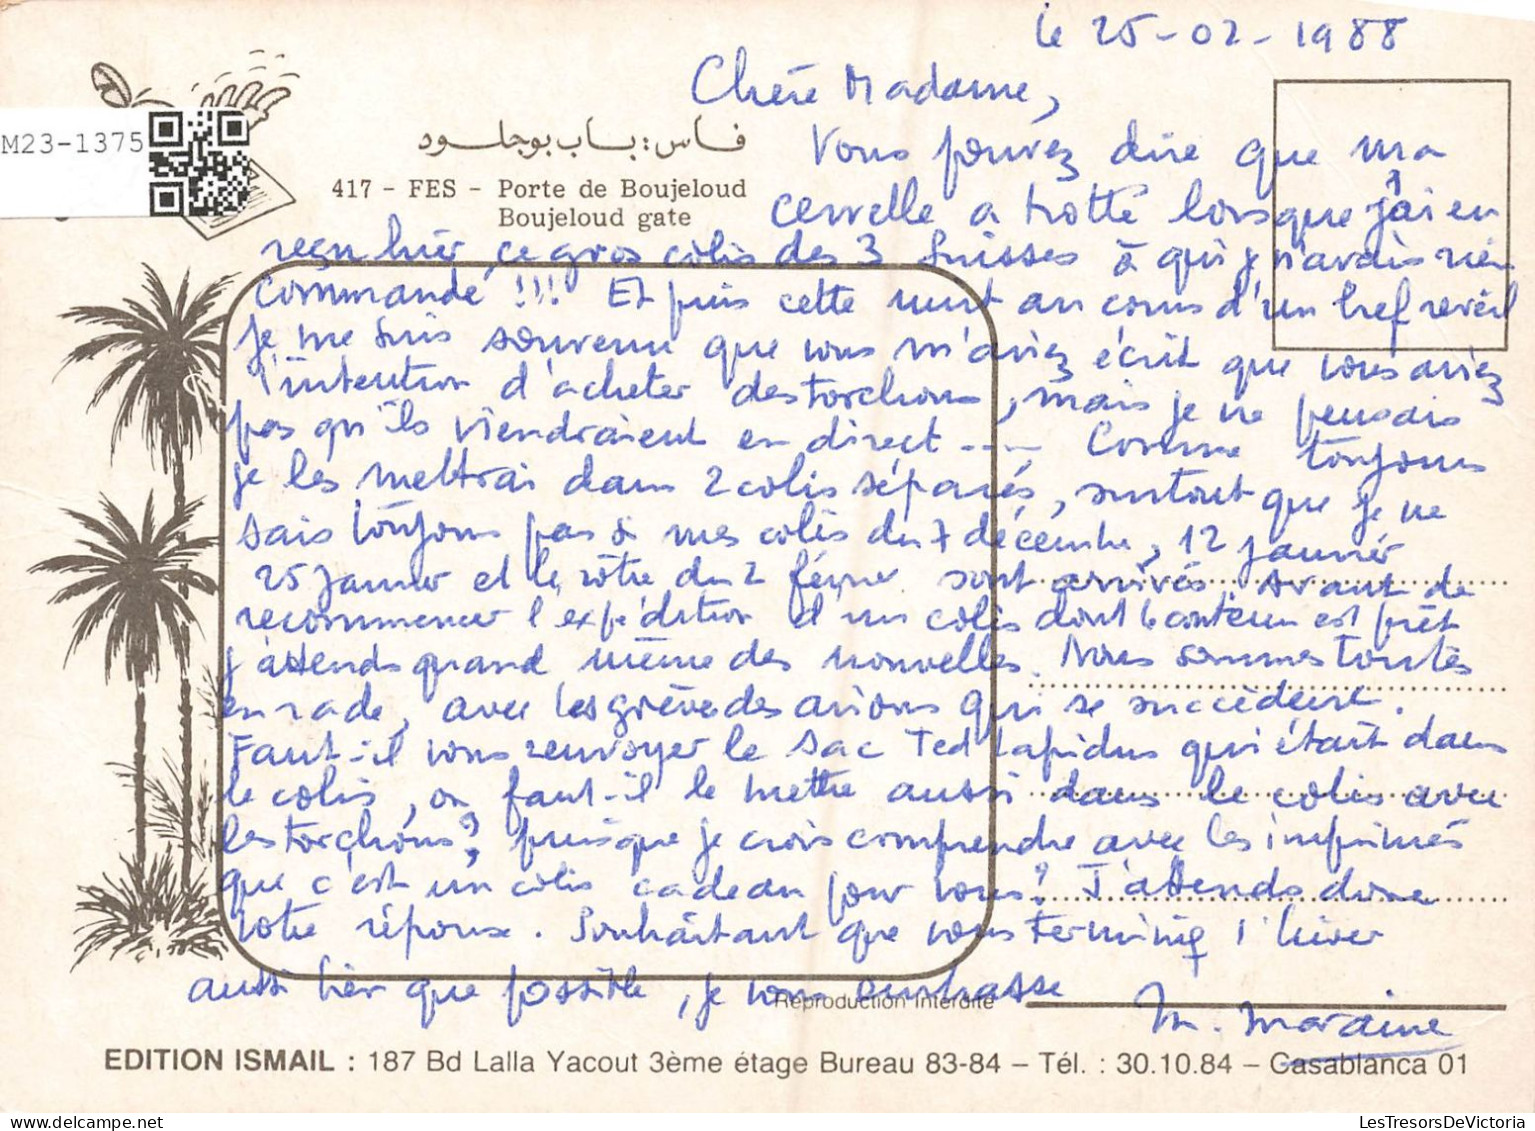 le 25-02-1988
Chère Madame,
M23-1375
فاس: باب بوجلود
417 - FES - Porte de Boujeloud
Boujeloud gate
Vous pouvez dire que ma
cervelle a trotté lorsque j'ai en
reçu hier ce gros colis des 3 Suisses à qui je n'avais rien
commandé !!! Et puis cette nuit au cours d'un bref reveil
je me suis souvenu que vous m'aviez écrit que vous aviez
l'intention d'acheter des torchons, mais je ne pensais
pas qu'ils viendraient en direct .... Comme toujours
je les mettrai dans 2 colis séparés, surtout que je ne
sais toujours pas si mes colis du 7 décembre, 12 janvier
25 janvier et le vôtre du 2 février sont arrivés. Avant de
recommencer l'expédition d'un colis dont le contenu est prêt
j'attends quand même des nouvelles. Nous sommes toutes
en rade, avec les grève des avions qui se succèdent.
Faut-il vous renvoyer le sac Ted Lapidus qui était dans
le colis, ou faut-il le mettre aussi dans le colis avec
les torchons? puisque je crois comprendre avec les imprimés
que c'est un colis cadeau pour vous? J'attends donc
votre réponse. Souhaitant que vous terminiez l'hiver
aussi bien que possible, je vous embrasse
Reproduction interdite
M. Moraine
EDITION ISMAIL : 187 Bd Lalla Yacout 3ème étage Bureau 83-84 – Tél. : 30.10.84 – Casablanca 01
LesTresorsDeVictoria